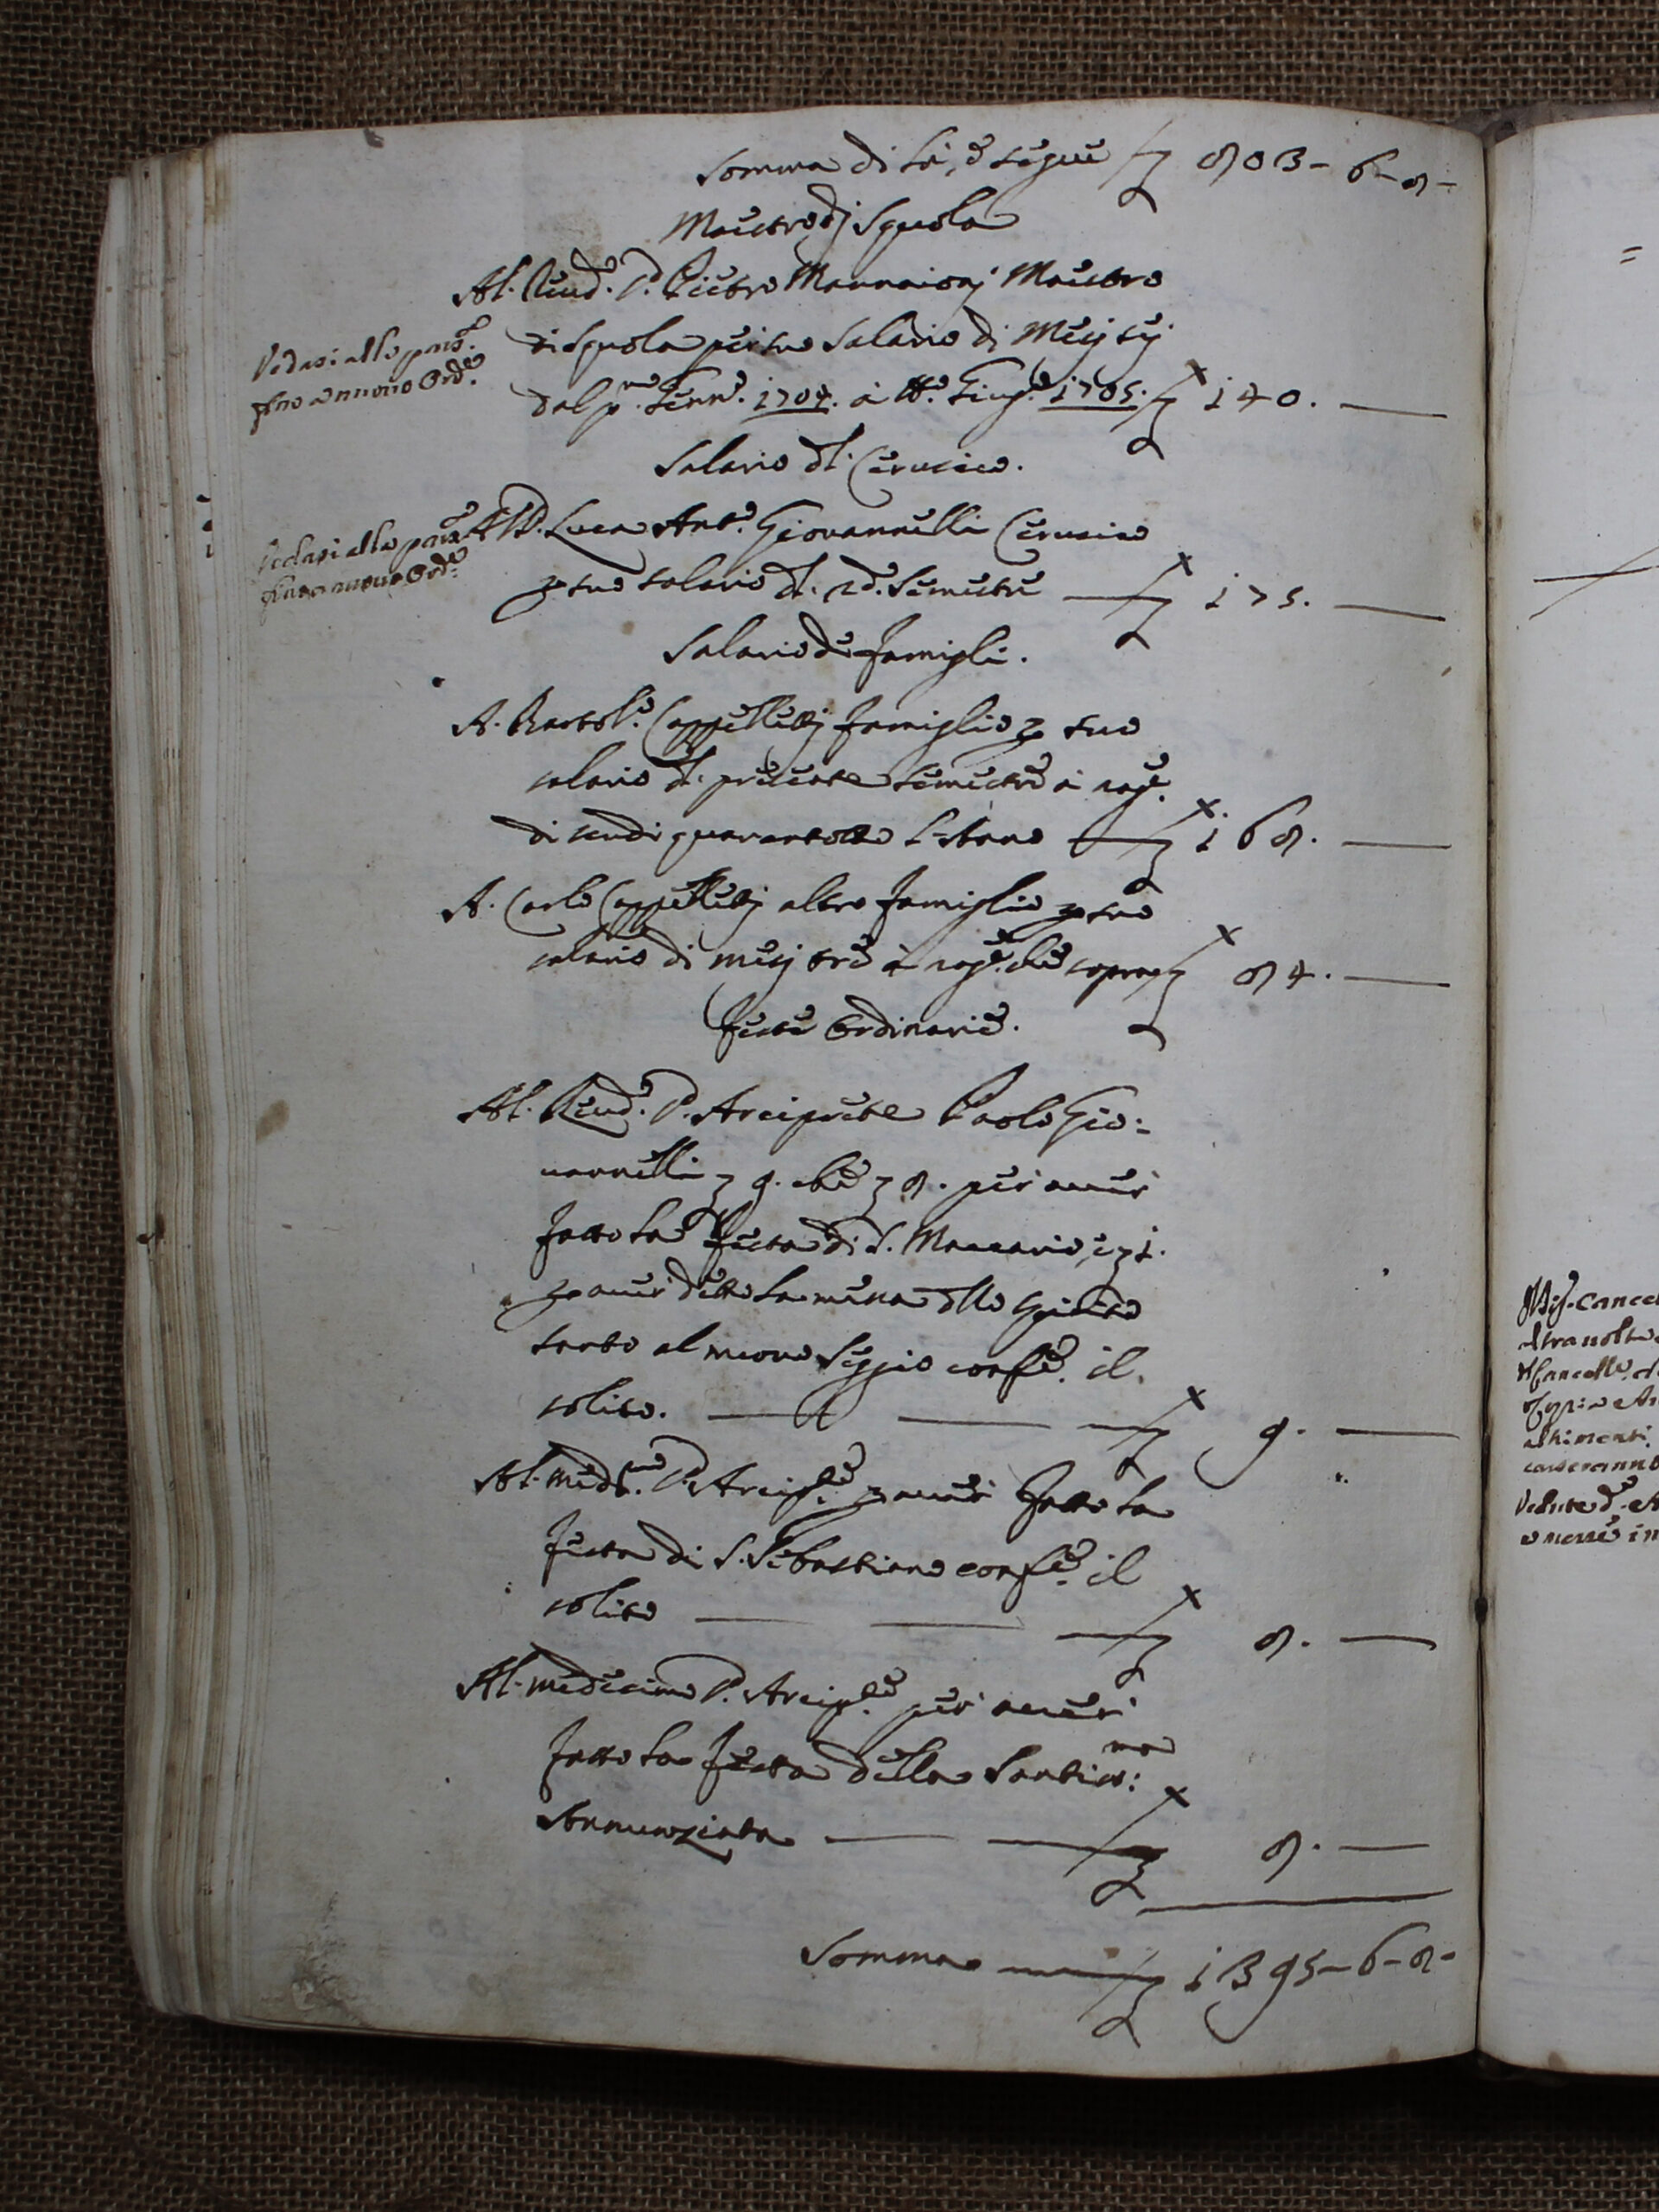 Somma di là, e segue 803-6-8-
Maestro di Squola
Al Reud.º P. Pietro Mannaionj Maestro
di Squola per suo Salario di Mesj sej
dal p.mo Genn.º 1704. à tt.º Giug.º 1705. 140.
Vedasi alla par.
fino a nuovo Ord.e
Salario dl Cerusico.
Al D. Luca Ant.º Giovannelli Cerusico
p suo salario dl. Semestre 175.
Vedasi alla par.
fino a nuovo Ord.e
Salario de famigli.
A. Bartol.º Cappellettj famiglio p suo
salario dl. presente semestre à rag.e
di scudi quarantotto l'Anno 168.
A. Carlo Cappellettj altro famiglio p suo
salario di mesj tre à rag.e che sopra 84.
Feste Ordinarie.
Al Reud.º P. Arciprete Paolo Gio:
vannelli 9. che 8. per aver
fatto la festa di S. Maccario, e 1.
p aver detto la messa dllo Spirito
santo al nuovo Seggio conf.e il
solito. 9.
Al med.mo P. Arcip.te p aver fatto la
festa di S. Sebastiano conf.e il
solito 8.
Al medesimo P. Arcip.te per aver
fatto la festa della Santiss:ma
Annunziata 8.
Somma 1395-6-8-
altra volta
altrimenti